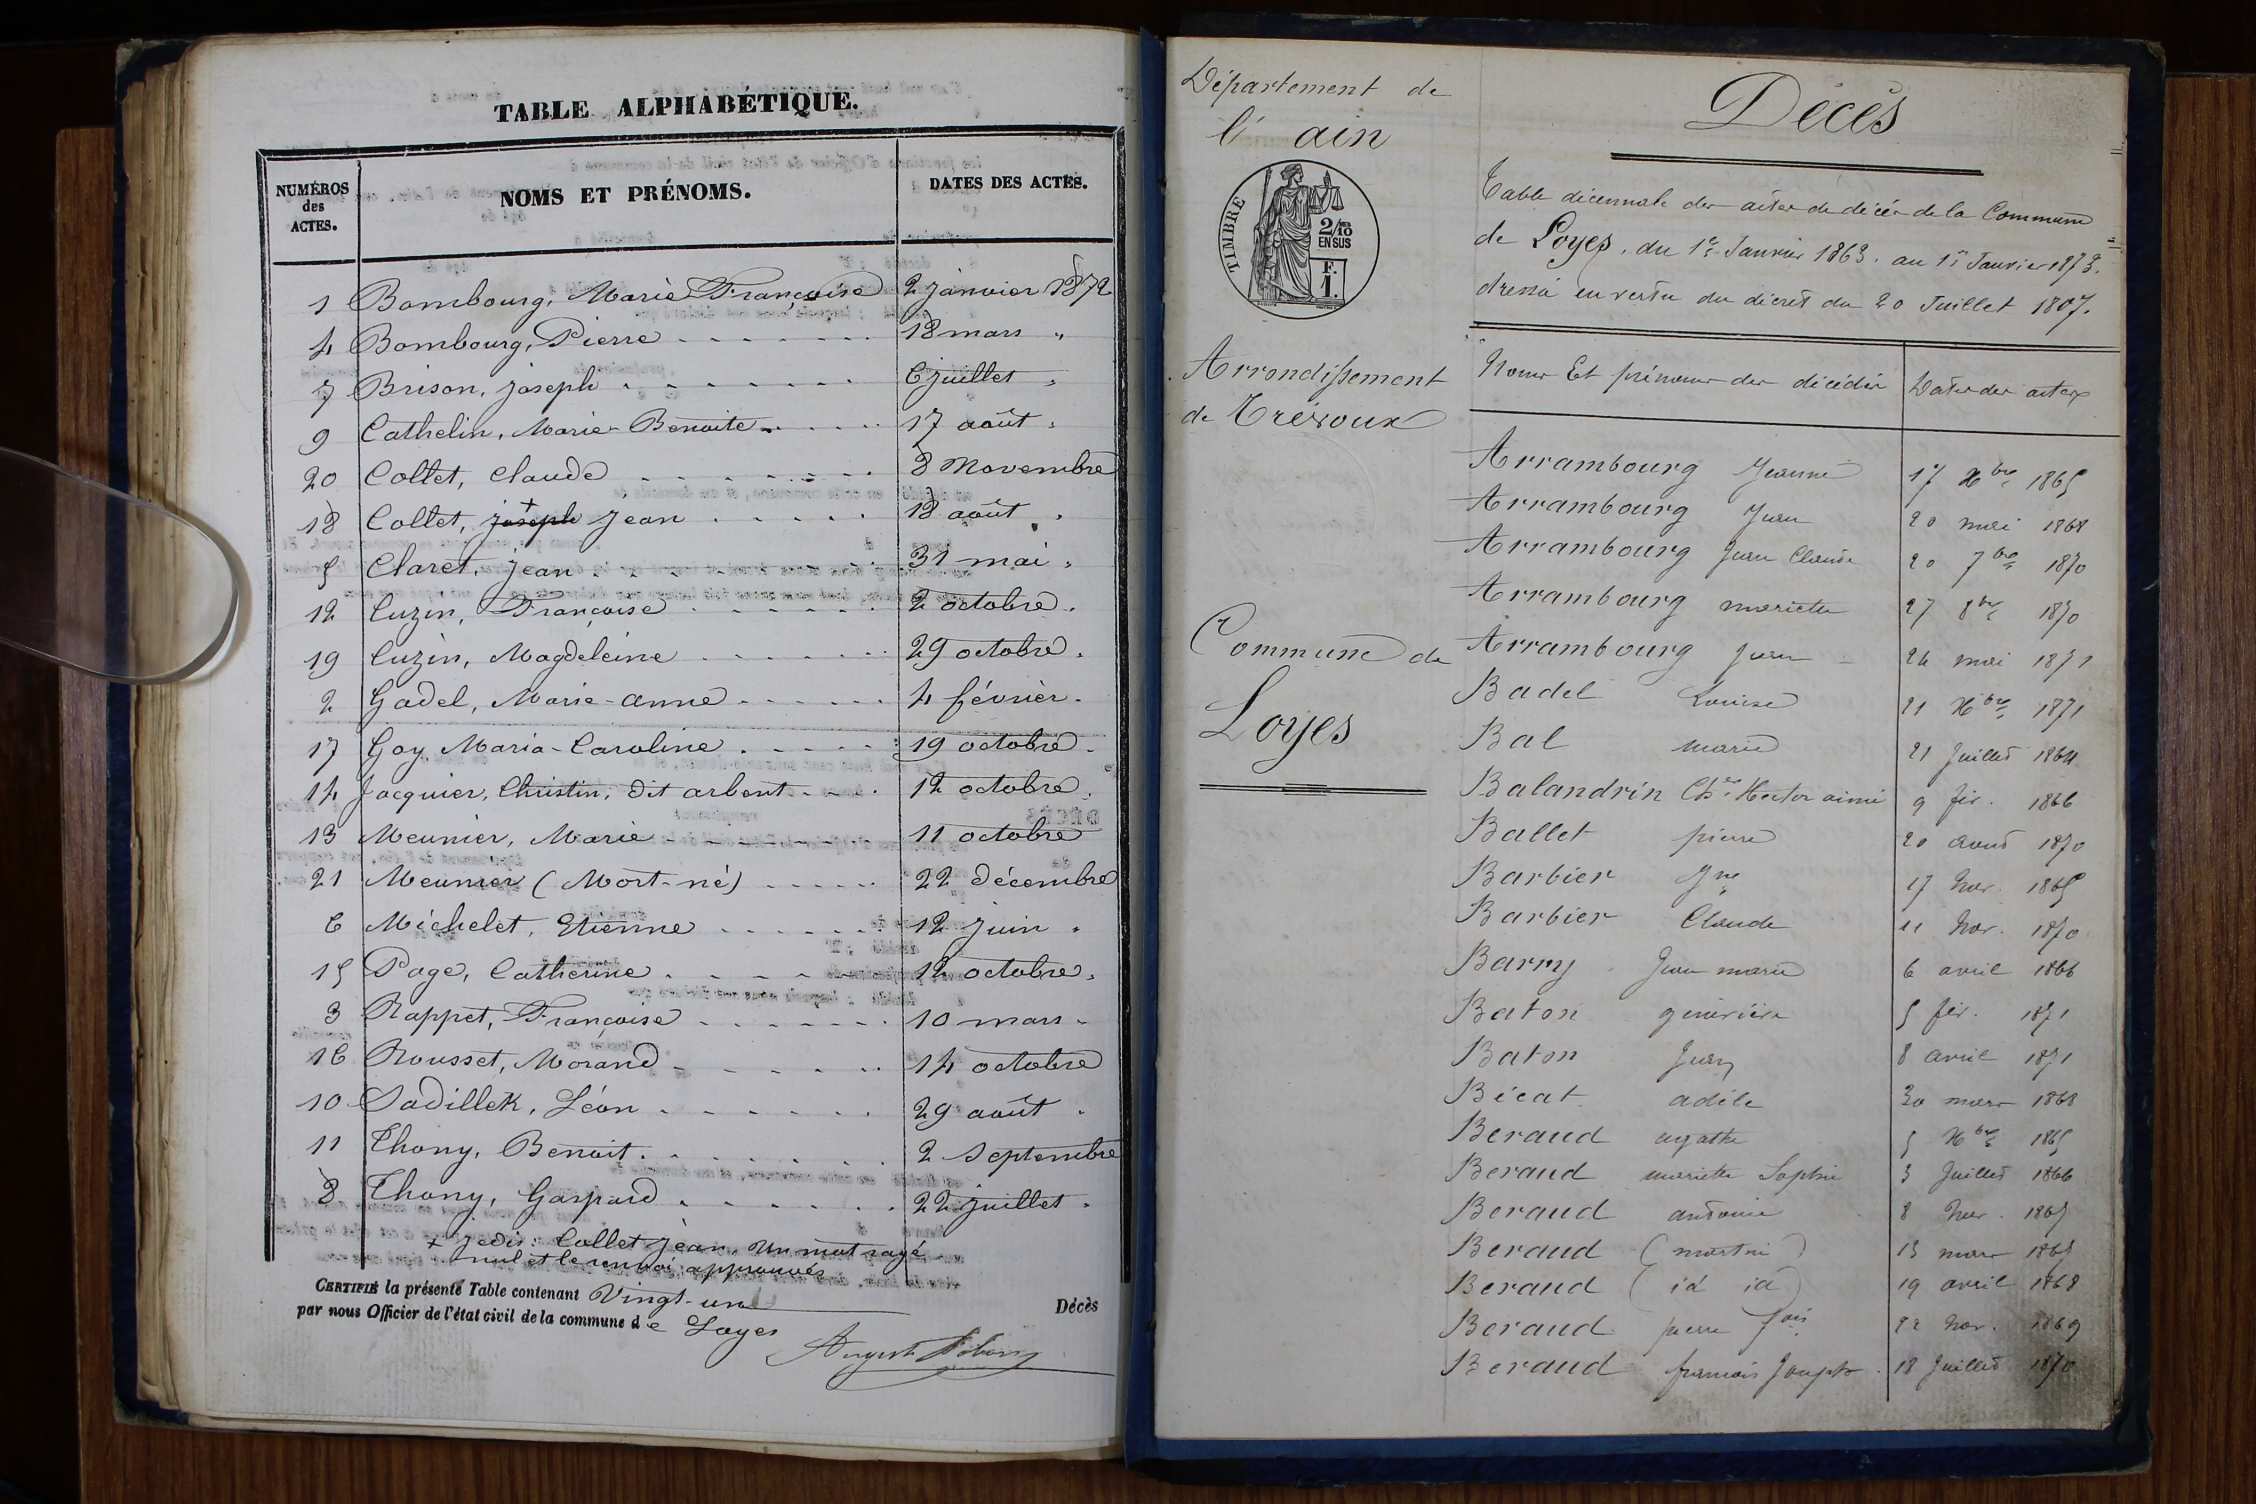 TABLE ALPHABÉTIQUE.
NUMÉROS des ACTES.
NOMS ET PRÉNOMS.
DATES DES ACTES.
1 Bombourg, Marie Françoise 2 janvier 1872
4 Bombourg, Pierre 18 mars "
7 Brison, joseph 6 juillet "
9 Cathelin, Marie-Benoite 17 août "
20 Collet, Claude 8 Novembre
18 Collet, joseph Jean 18 août "
5 Claret, Jean 31 mai "
12 Cuzin, Françoise 2 octobre "
19 Cuzin, Magdeleine 29 octobre "
2 Gadel, Marie-anne 4 février "
17 Goy, Maria-Caroline 19 octobre "
14 Jacquier, Christin, dit arbent 12 octobre "
13 Meunier, Marie 11 octobre
21 Meunier (Mort-né) 22 décembre
6 Michelet, Etienne 12 juin "
15 Page, Catherine 12 octobre "
3 Rappet, Françoise 10 mars "
16 Rousset, Morand 14 octobre
10 Sadillek, Léon 29 août "
11 Thony, Benoit 2 septembre
8 Thony, Gaspard 22 juillet "
+ je dis: Collet Jean. Un mot rayé
nul et le renvoi approuvés
CERTIFIÉ la présente Table contenant Vingt-un Décès
par nous Officier de l'état civil de la commune de Loyes
Département de
l'ain
TIMBRE
2/10
EN SUS
F.
1.
Arrondissement
de Trévoux
Commune de
Loyes
Décès
Table décennale des actes de décès de la Commune
de Loyes, du 1er Janvier 1863, au 1er Janvier 1873.
dressé en vertu du décret du 20 Juillet 1807.
Noms Et prénoms des décédés Dates des actes
Arrambourg Jeanne 17 Xbre 1865
Arrambourg Jean 20 mai 1868
Arrambourg Jean Claude 20 7bre 1870
Arrambourg mariette 27 8bre 1870
Arrambourg Jean 24 mai 1871
Badel Louise 21 Xbre 1871
Bal marie 21 Juillet 1864
Balandrin Ches Hector aimé 9 fév. 1866
Ballet pierre 20 aout 1870
Barbier Jne 17 Nov. 1865
Barbier Claude 11 Nov. 1870
Barry Jean marie 6 avril 1866
Baton généviève 5 fév. 1871
Baton Jean 8 avril 1871
Bécat adèle 30 mars 1868
Beraud agathe 5 Xbre 1865
Beraud mariette Sophie 3 Juillet 1866
Beraud antoine 8 Nov. 1867
Beraud (mort né) 13 mars 1865
Beraud (id id) 19 avril 1868
Beraud pierre fois 22 Nov. 1869
Beraud francois Joseph 18 Juillet 1870